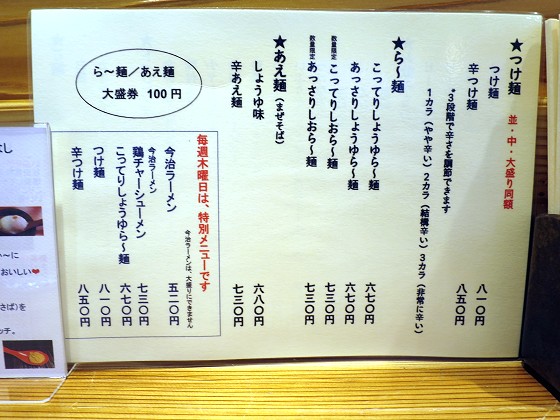 ★つけ麺 並・中・大盛り同額
つけ麺 八一〇円
辛つけ麺 八五〇円
*3段階で辛さを調節できます
1カラ(やや辛い) 2カラ(結構辛い) 3カラ(非常に辛い)
★ら〜麺
こってりしょうゆら〜麺 六七〇円
あっさりしょうゆら〜麺 六七〇円
数量限定 こってりしおら〜麺 七三〇円
数量限定 あっさりしおら〜麺 七三〇円
★あえ麺(まぜそば)
しょうゆ味 六八〇円
辛あえ麺 七三〇円
ら〜麺/あえ麺
大盛券 100円
毎週木曜日は、特別メニューです
今治ラーメンは、大盛りにできません
今治ラーメン 五二〇円
今治ラーメン
鶏チャーシューメン 七三〇円
こってりしょうゆら〜麺 六七〇円
つけ麺 八一〇円
辛つけ麺 八五〇円
し
〜に
おいしい❤
さば)を
ッチ。